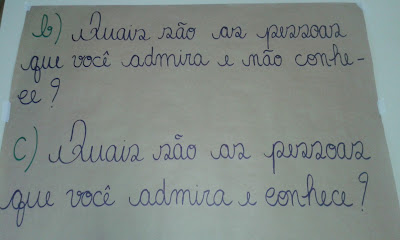 b) Quais são as pessoas
que você admira e não conhe-
ce?
c) Quais são as pessoas
que você admira e conhece?